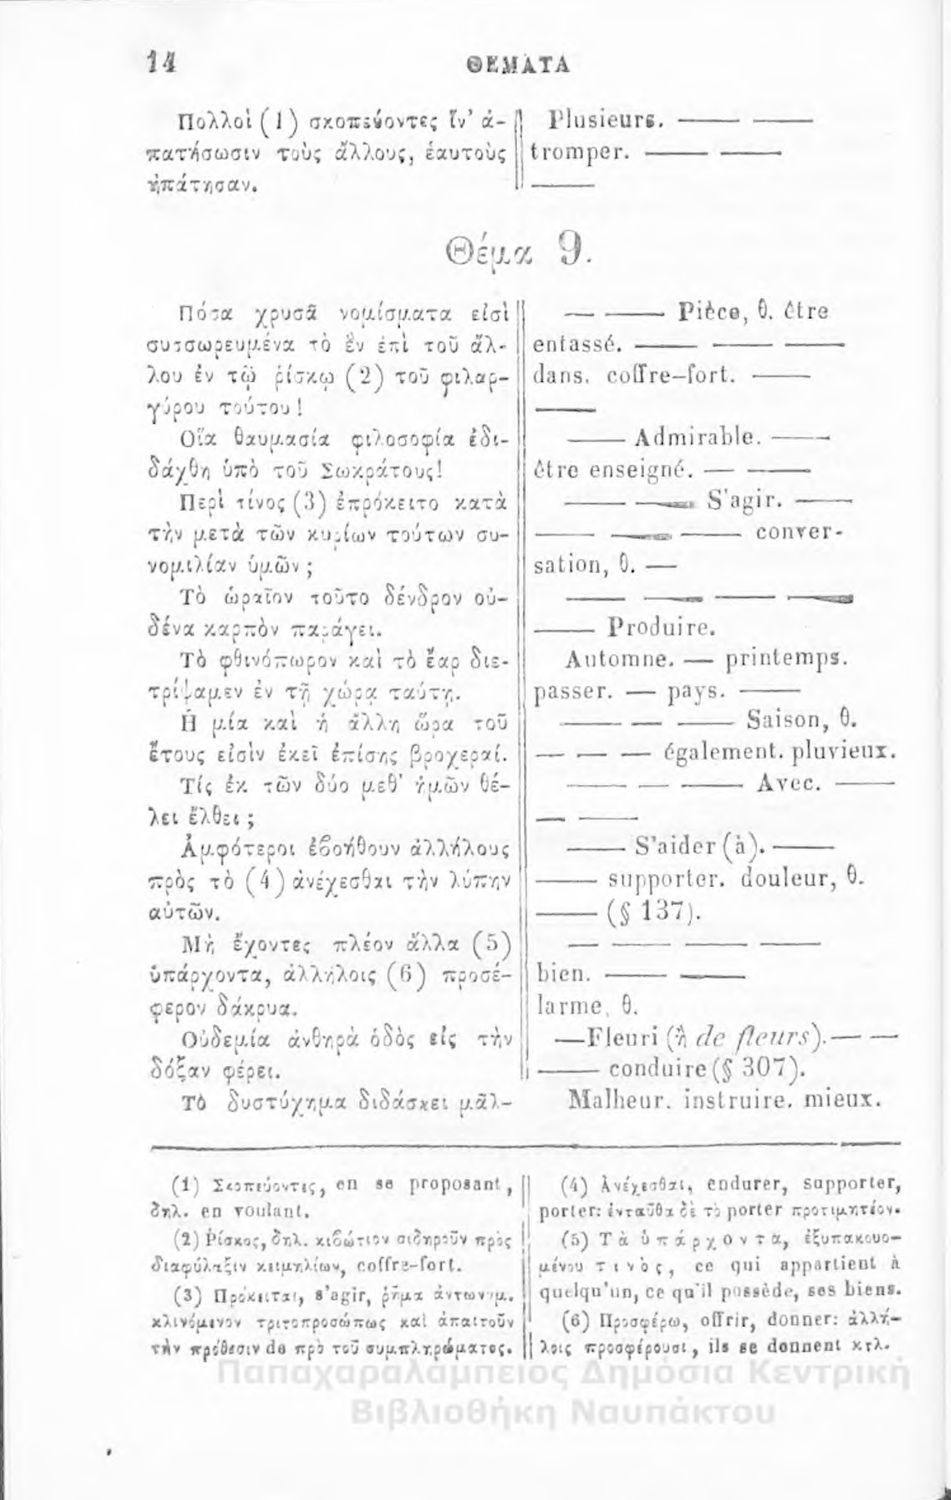 14 ΘΕΜΑΤΑ
Πολλοὶ (1) σκοπεύοντες ἵν' ἀ-
πατήσωσιν τοὺς ἄλλους, ἑαυτοὺς
ἠπάτησαν.
Plusieurs. ——— ———
tromper. ——— ———
———
Θέμα 9.
Πόσα χρυσᾶ νομίσματα εἰσὶ
συσσωρευμένα τὸ ἓν ἐπὶ τοῦ ἄλ-
λου ἐν τῷ ῥίσκῳ (2) τοῦ φιλαρ-
γύρου τούτου!
Οἵα θαυμασία φιλοσοφία ἐδι-
δάχθη ὑπὸ τοῦ Σωκράτους!
Περὶ τίνος (3) ἐπρόκειτο κατὰ
τὴν μετὰ τῶν κυρίων τούτων συ-
νομιλίαν ὑμῶν;
Τὸ ὡραῖον τοῦτο δένδρον οὐ-
δένα καρπὸν παράγει.
Τὸ φθινόπωρον καὶ τὸ ἔαρ διε-
τρίψαμεν ἐν τῇ χώρᾳ ταύτῃ.
Ἡ μία καὶ ἡ ἄλλη ὥρα τοῦ
ἔτους εἰσὶν ἐκεῖ ἐπίσης βροχεραί.
Τίς ἐκ τῶν δύο μεθ' ἡμῶν θέ-
λει ἔλθει;
Ἀμφότεροι ἐβοήθουν ἀλλήλους
πρὸς τὸ (4) ἀνέχεσθαι τὴν λύπην
αὐτῶν.
Μὴ ἔχοντες πλέον ἄλλα (5)
ὑπάρχοντα, ἀλλήλοις (6) προσέ-
φερον δάκρυα.
Οὐδεμία ἀνθηρὰ ὁδὸς εἰς τὴν
δόξαν φέρει.
Τὸ δυστύχημα διδάσκει μᾶλ-
— ——— Pièce, θ. être
entassé. ——— ———
dans. coffre-fort. ———
———
——— Admirable. ———
être enseigné. — ———
——— ——— S'agir. ———
——— ——— ——— conver-
sation, θ. —
——— ——— ——— ———
——— Produire.
Automne. — printemps.
passer. — pays. ———
——— — ——— Saison, θ.
— — — également. pluvieux.
——— — ——— Avec. ———
— ———
——— S'aider (à). ———
——— supporter. douleur, θ.
——— (§ 137).
— ——— ——— ———
bien. ——— ———
larme, θ.
—Fleuri (ἢ de fleurs).— —
——— conduire (§ 307).
Malheur. instruire. mieux.
(1) Σκοπεύοντες, en se proposant,
δηλ. en voulant.
(2) Ῥίσκος, δηλ. κιβώτιον σιδηροῦν πρὸς
διαφύλαξιν κειμηλίων, coffre-fort.
(3) Πρόκειται, s'agir, ῥῆμα ἀντωνυμ.
κλινόμενον τριτοπροσώπως καὶ ἀπαιτοῦν
τὴν πρόθεσιν de πρὸ τοῦ συμπληρώματος.
(4) Ἀνέχεσθαι, endurer, supporter,
porter: ἐνταῦθα δὲ τὸ porter προτιμητέον.
(5) Τὰ ὑπάρχοντα, ἐξυπακουο-
μένου τινὸς, ce qui appartient à
quelqu'un, ce qu'il possède, ses biens.
(6) Προσφέρω, offrir, donner: ἀλλή-
λοις προσφέρουσι, ils se donnent κτλ.
Παπαχαραλάμπειος Δημόσια Κεντρική
Βιβλιοθήκη Ναυπάκτου